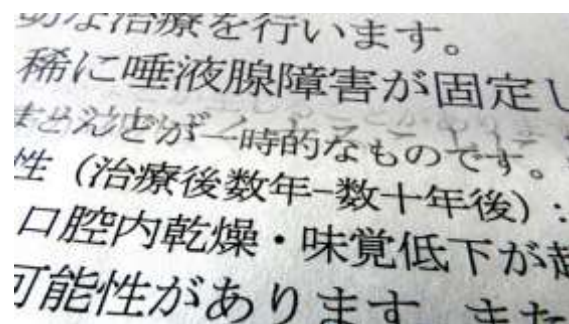 切な治療を行います。
稀に唾液腺障害が固定し
ほとんどが一時的なものです。
性（治療後数年−数十年後）：
口腔内乾燥・味覚低下が起
可能性があります。また